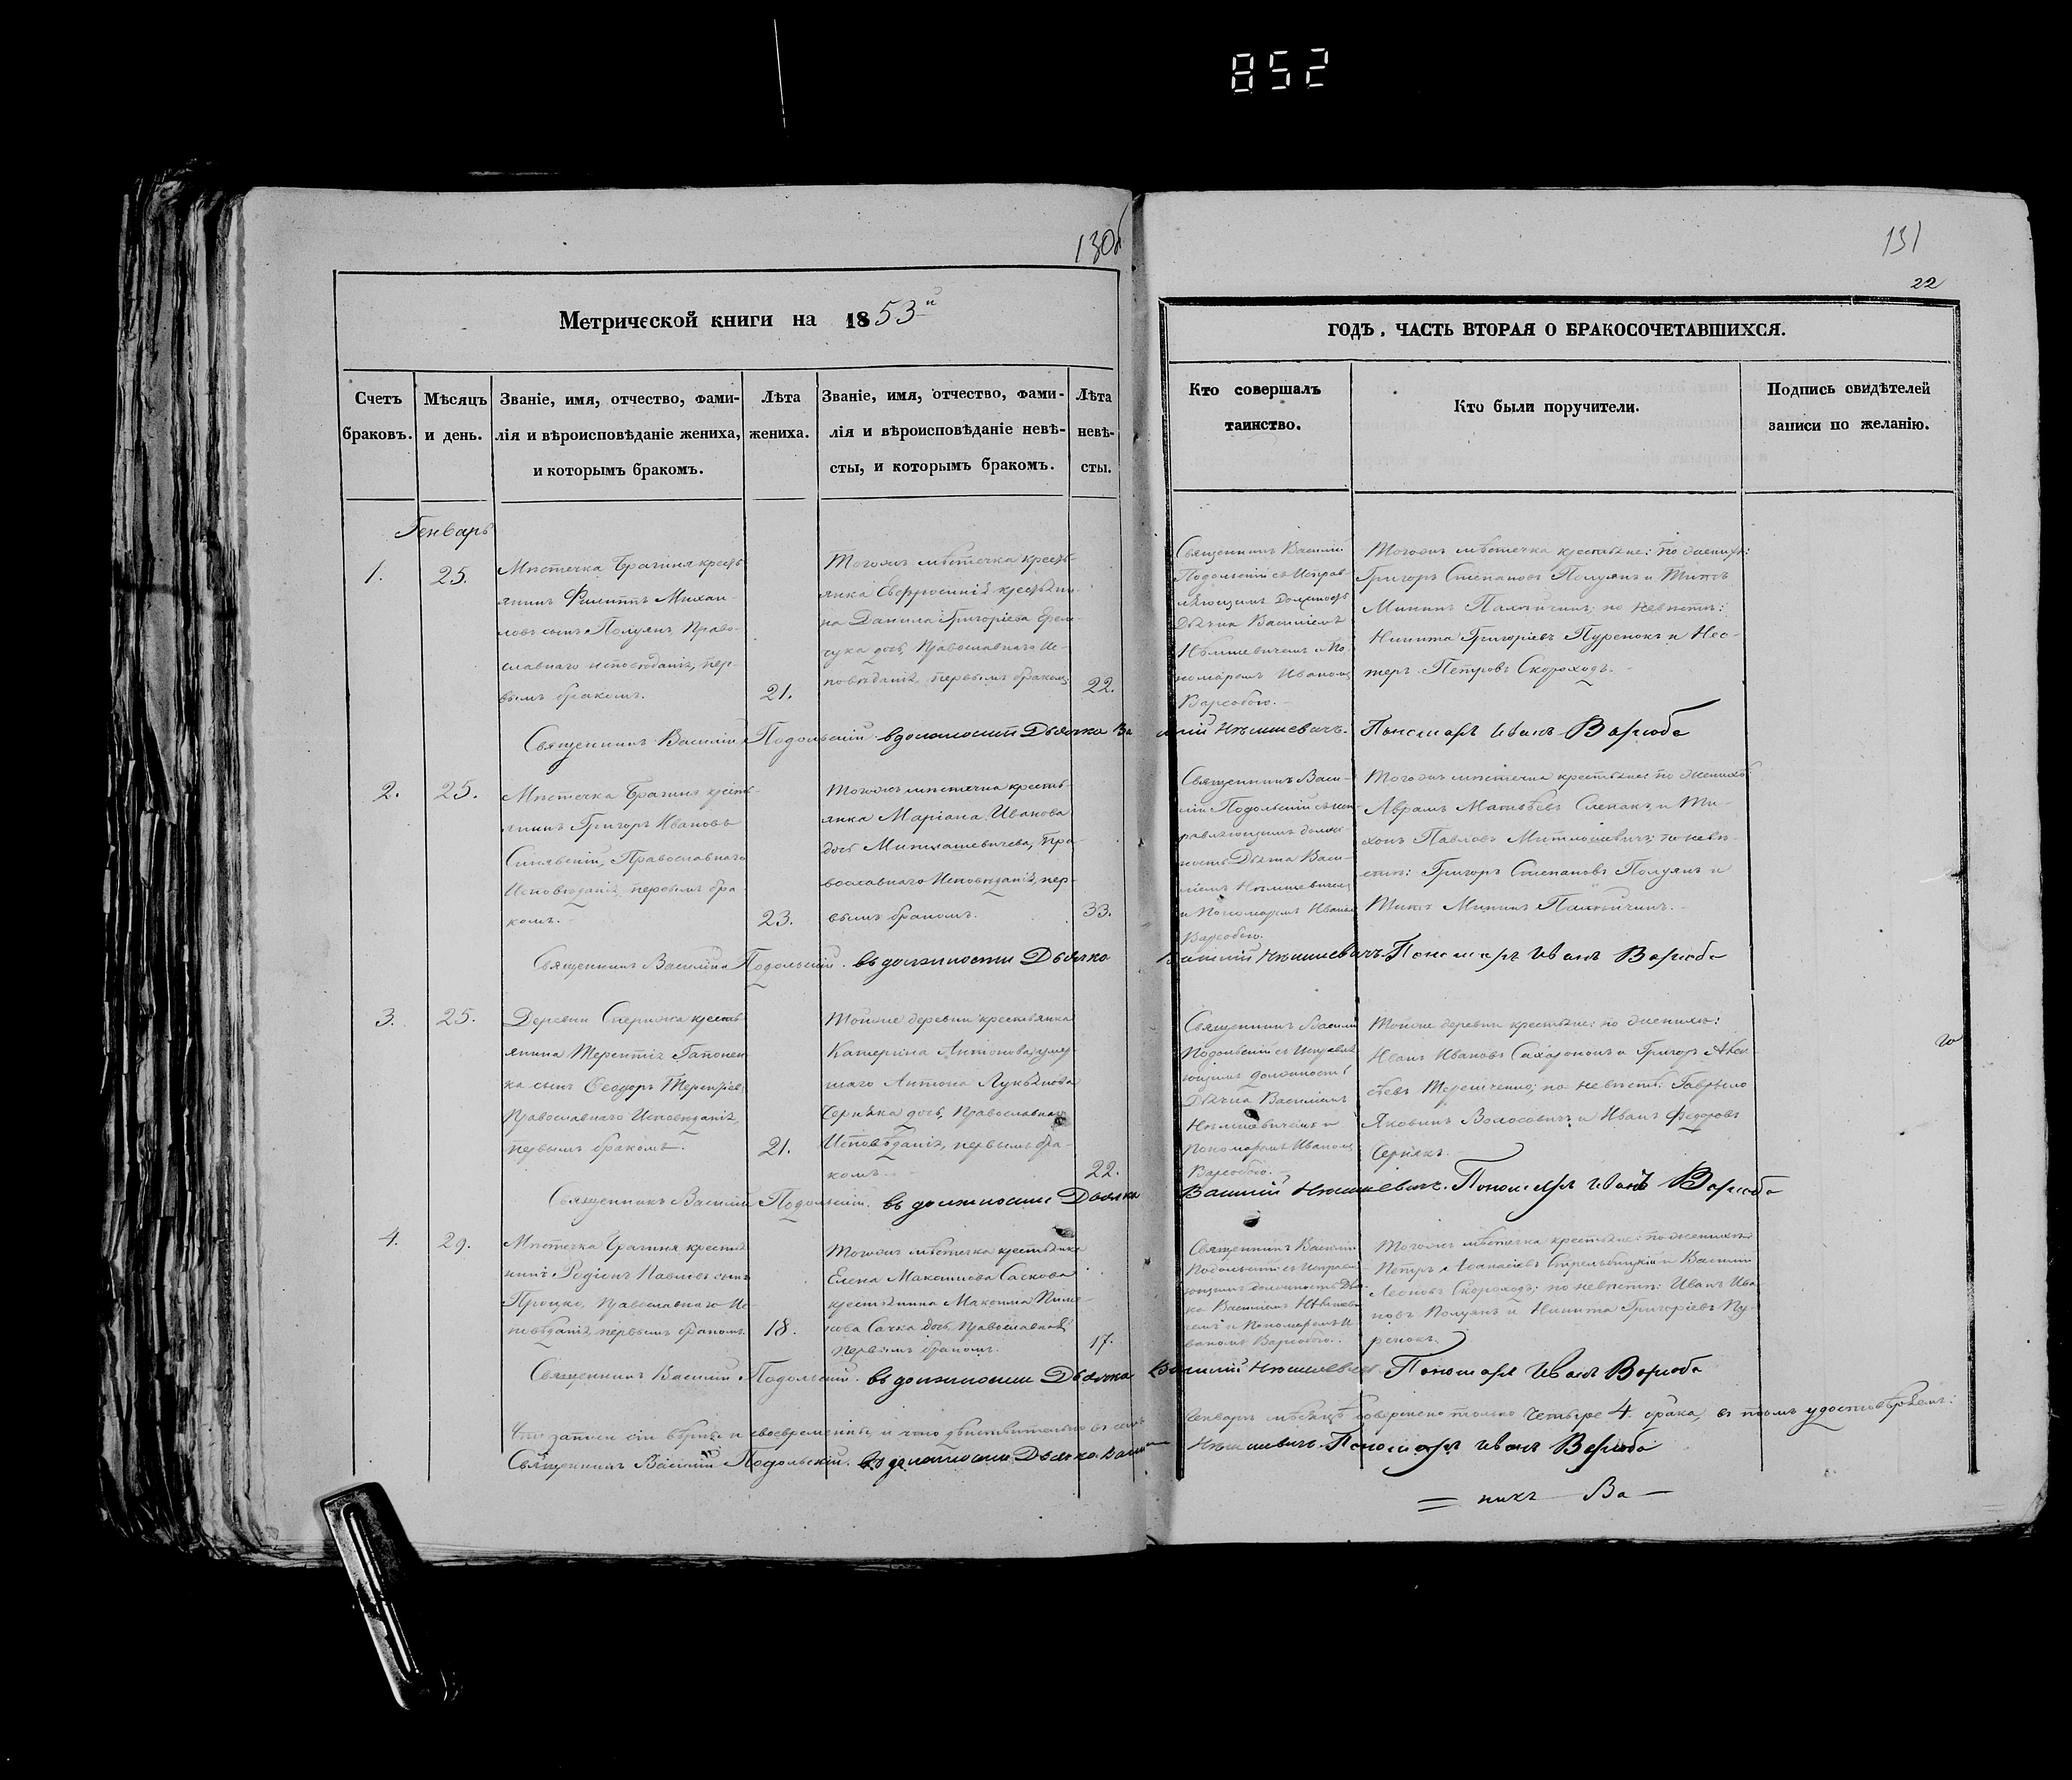 852
130об
131
22
Метрической книги на 1853й
ГОДЪ, ЧАСТЬ ВТОРАЯ О БРАКОСОЧЕТАВШИХСЯ.
Счетъ
браковъ.
Мѣсяцъ
и день.
Званіе, имя, отчество, фами-
лія и вѣроисповѣданіе жениха,
и которымъ бракомъ.
Лѣта
жениха.
Званіе, имя, отчество, фами-
лія и вѣроисповѣданіе невѣ-
сты, и которымъ бракомъ.
Лѣта
невѣ-
сты.
Кто совершалъ
таинство.
Кто были поручители.
Подпись свидѣтелей
записи по желанію.
Генварь
1.
25.
Мѣстечка Брагиня кресть-
янинъ Филиппъ Михаи-
ловъ сынъ Полуянъ, Право-
славнаго исповѣданія, пер-
вымъ бракомъ.
21.
Тогожъ мѣстечка кресть-
янка Евфросинія крестьяни-
на Данила Григоріева
дочь, Православнаго Ис-
повѣданія, первымъ бракомъ.
22.
Священникъ Василій
Подольскій съ Исправ-
ляющимъ должность
Дьячка Василіемъ
и По-
номаремъ Иваномъ
Варсобою.
Тогожъ мѣстечка крестьяне: по женихѣ:
Григоръ Степановъ Полуянъ и Титъ
Мининъ; по невѣстѣ:
Никита Григоріевъ Пуренокъ и Нес-
теръ Петровъ Скороходъ.
Священникъ Василій Подольскій въ должности Дьячка Ва
силій Пономарь Иванъ
2.
25.
Мѣстечка Брагиня кресть-
янинъ Григоръ Ивановъ
Синявскій, Православнаго
Исповѣданія, первымъ бра-
комъ.
23.
Тогожъ мѣстечка кресть-
янка Маріана Иванова
дочь Митлашевичева, Пра-
вославнаго Исповѣданія, пер-
вымъ бракомъ.
33.
Священникъ Васи-
лій Подольскій съ ис-
правляющимъ долж-
ность Дьячка Васи-
ліемъ
и Пономаремъ Иваномъ
Варсобою.
Тогожъ мѣстечка крестьяне: по женихѣ
Аврамъ Матвѣевъ и Ти-
хонъ Павловъ Митлошевичъ; по невѣ-
стѣ: Григоръ Степановъ Полуянъ и
Титъ Мининъ
Священникъ Василій Подольскій. въ должности Дьячка
Василій Пономарь Иванъ
3.
25.
Деревни кресть-
янина Терентія Гапонен-
ка сынъ Ѳеодоръ Терентіевъ,
Православнаго Исповѣданія,
первымъ бракомъ.
21.
Тойже деревни крестьянка
Катерина Антонова, умер-
шаго Антона
дочь, Православнаго
Исповѣданія, первымъ бра-
комъ.
22.
Священникъ Василій
Подольскій съ Исправля-
ющимъ должность
Дьячка Василіемъ
и
Пономаремъ Иваномъ
Варсобою.
Тойже деревни крестьяне: по женихѣ:
Иванъ Ивановъ и Григоръ
по невѣстѣ:
Яковинъ Волосовичъ и Иванъ Федоровъ
Священникъ Василій Подольскій. въ должности Дьячка
Василій Пономарь Иванъ
4.
29.
Мѣстечка Брагиня крестья-
нинъ Родіонъ Павловъ сынъ
Процко, Православнаго Ис-
повѣданія, первымъ бракомъ.
18.
Тогожъ мѣстечка крестьянка
Елена Максимова Саскова
крестьянина Максима
дочь, Православнаго
первымъ бракомъ.
17.
Священникъ Василій
Подольскій съ Исправля-
ющимъ должность Дьяч-
ка Василіемъ
и Пономаремъ И-
ваномъ Варсобою.
Тогожъ мѣстечка крестьяне: по женихѣ
Петръ Аѳанасіевъ Стрельбицкій и Василій
Леоновъ Скороходъ; по невѣстѣ: Иванъ Ива-
новъ Полуянъ и Никита Григоріевъ Пу-
ренокъ.
Священникъ Василій Подольскій. въ должности Дьячка
Василій Пономарь Иванъ
Что записи сіи вѣрны и своевременны, и что дѣйствительно въ семъ
Генварѣ мѣсяцѣ совершено только четыре 4. брака, въ томъ удостовѣряемъ:
Священникъ Василій Подольскій. въ должности Дьячка
Пономарь Иванъ
никъ Ва